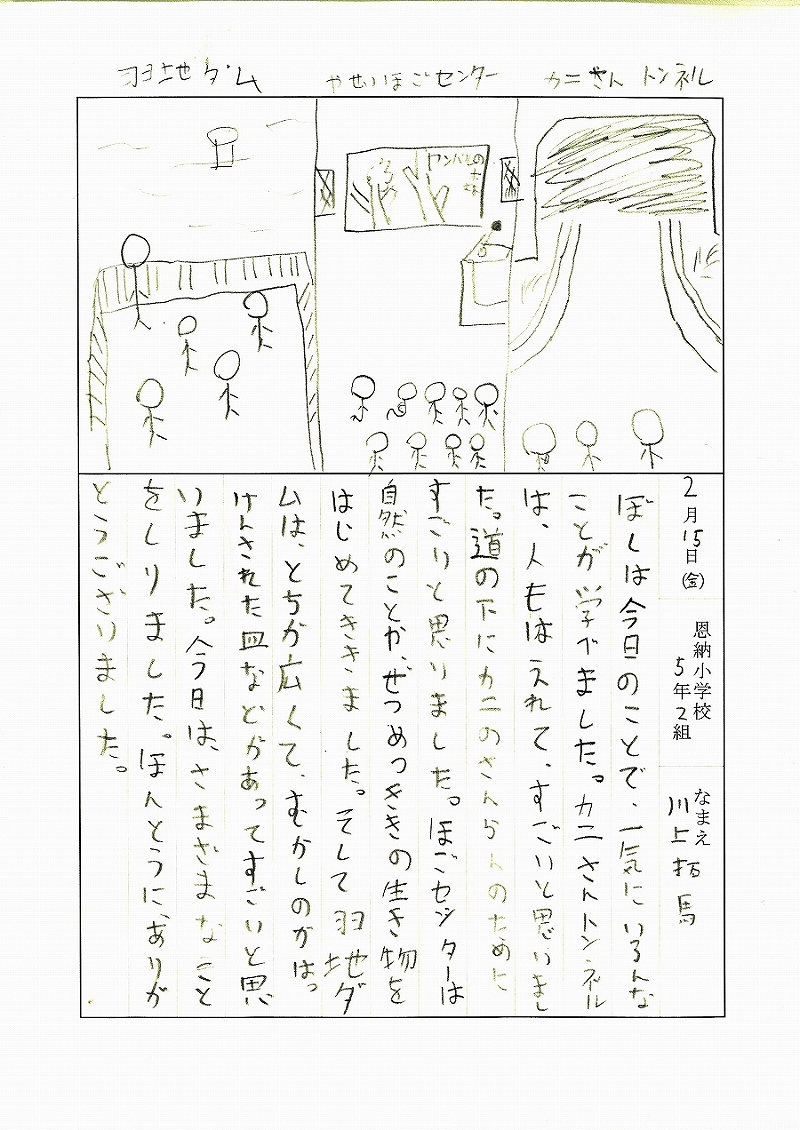 羽地ダム
やせいほごセンター
カニさん トンネル
ヤンバルの
2月15日(金)
恩納小学校
5年2組
なまえ
川上拓馬
ぼくは今日のことで、一気にいろんな
ことが学べました。カニさんトンネル
は、人もはえれて、すごいと思いまし
た。道の下にカニのさんらんのために
すごいと思いました。ほごセンターは
自然のことか、ぜつめつきぎの生き物を
はじめてききました。そして羽地ダ
ムは、とちが広くて、むかしのかはっ
けんされた皿などがあってすごいと思
いました。今日は、さまざまなこと
をしりました。ほんとうに、ありが
とうございました。